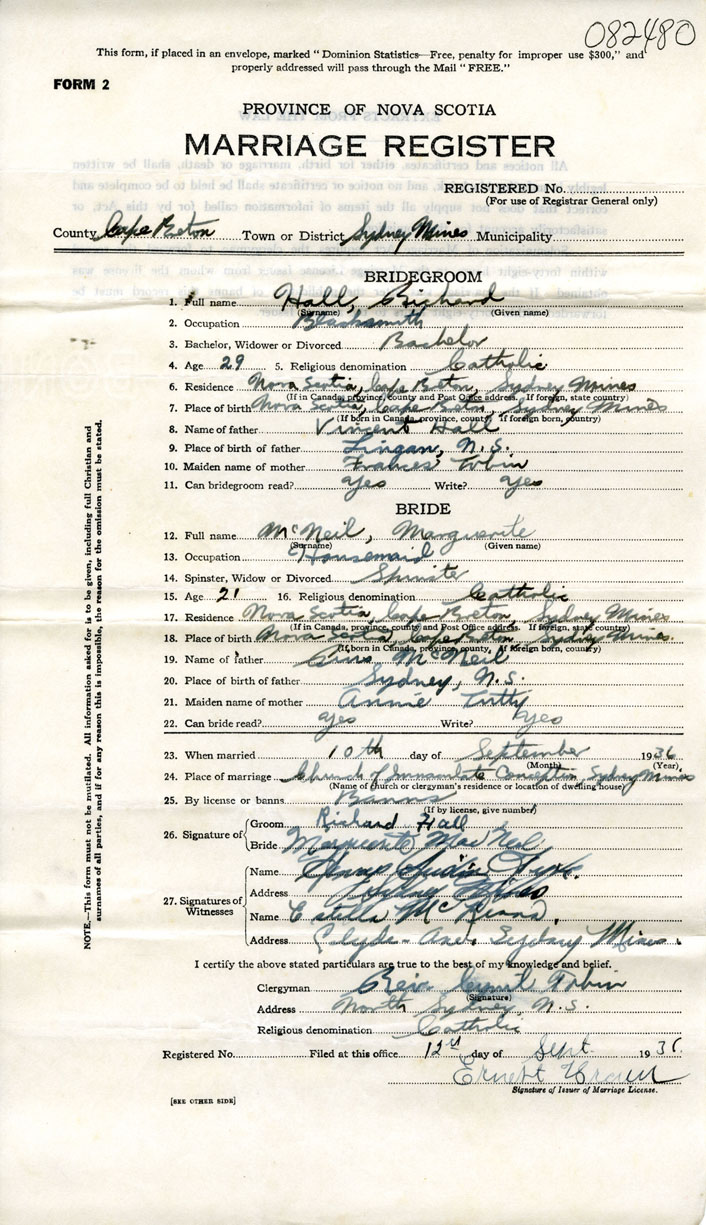 082480
This form, if placed in an envelope, marked "Dominion Statistics—Free, penalty for improper use $300," and
properly addressed will pass through the Mail "FREE."
FORM 2
PROVINCE OF NOVA SCOTIA
MARRIAGE REGISTER
REGISTERED No.
(For use of Registrar General only)
County Cape Breton Town or District Sydney Mines Municipality
BRIDEGROOM
1. Full name Hall, Richard
(Surname) (Given name)
2. Occupation Blacksmith
3. Bachelor, Widower or Divorced Bachelor
4. Age 29 5. Religious denomination Catholic
6. Residence Nova Scotia, Cape Breton, Sydney Mines
(If in Canada, province, county and Post Office address. If foreign, state country)
7. Place of birth Nova Scotia, Cape Breton, Sydney Mines
(If born in Canada, province, county. If foreign born, country)
8. Name of father Vincent Hall
9. Place of birth of father Lingan, N.S.
10. Maiden name of mother Frances Tobin
11. Can bridegroom read? yes Write? yes
BRIDE
12. Full name McNeil, Marguerite
(Surname) (Given name)
13. Occupation Housemaid
14. Spinster, Widow or Divorced Spinster
15. Age 21 16. Religious denomination Catholic
17. Residence Nova Scotia, Cape Breton, Sydney Mines
(If in Canada, province, county and Post Office address. If foreign, state country)
18. Place of birth Nova Scotia, Cape Breton, Sydney Mines.
(If born in Canada, province, county. If foreign born, country)
19. Name of father McNeil
20. Place of birth of father Sydney, N.S.
21. Maiden name of mother Annie Tutty
22. Can bride read? yes Write? yes
23. When married 10th day of September 1936
(Month) (Year)
24. Place of marriage Church of Immaculate Conception, Sydney Mines
(Name of church or clergyman's residence or location of dwelling house)
25. By license or banns Banns
(If by license, give number)
26. Signature of Groom Richard Hall
Bride Marguerite MacNeil
27. Signatures of Witnesses
Name
Address Sydney Mines
Name Estella
Address Clyde Ave. Sydney Mines.
I certify the above stated particulars are true to the best of my knowledge and belief.
Clergyman Rev. Tobin
(Signature)
Address North Sydney N.S.
Religious denomination Catholic
Registered No. Filed at this office 12th day of Sept. 1936
Ernest
Signature of Issuer of Marriage License.
[SEE OTHER SIDE]
NOTE.—This form must not be mutilated. All information asked for is to be given, including full Christian and
surnames of all parties, and if for any reason this is impossible, the reason for the omission must be stated.